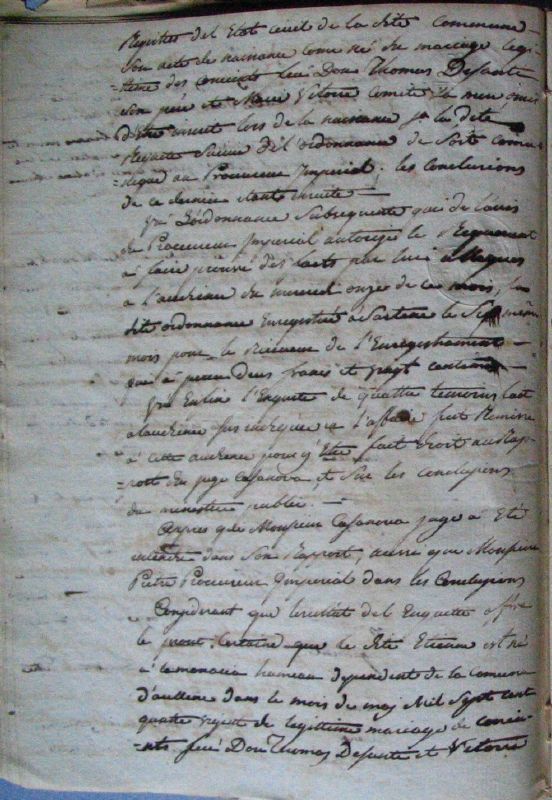 Registres del Etat civil de la dite Commune
Son acte de naissance comme né du mariage legi-
=time des conjoints feu Don Thomas Desanti
Son père et Marie Vetoire
lors de la naissance la dite
Requete Suivie del ordonnance de Soit commu-
=niqué au Procureur Imperial. les Conclusions
de ce dernier étant ensuite
Vu L'ordonnance Subsequente qui de l'avis
du Procureur Imperial autorize le Requerant
à faire preuve des faits par lui allegués
à l'audience du mercredi onze de ce mois, la
dite ordonnance Enregistrée à Sartene le Sept même
mois pour le Receveur de l'Enregistrement
qui à perçu deux francs et vingt centimes
Vu Enfin l'Enquete de quattre temoins fait
à l'audience l'affaire fut Remise
à cette audience pour y Etre fait droit au Rap-
=port du juge Casanova et Sur les conclusions
du ministere public. —
Après que Monsieur Casanova juge à Eté
entendu dans Son Rapport, ainsi que Monsieur
Pietri Procureur Imperial dans les Conclusions
Considerant que le resultat del Enquette offre
la preuve Certaine que le dit Etienne est né
à la monacia hameau dependent de la commune
d'aullene dans le mois de maj Mil Sept cent
quatre vingt de legittime mariage de conjoi-
=nts feu Don Thomas Desanti et Vetoire